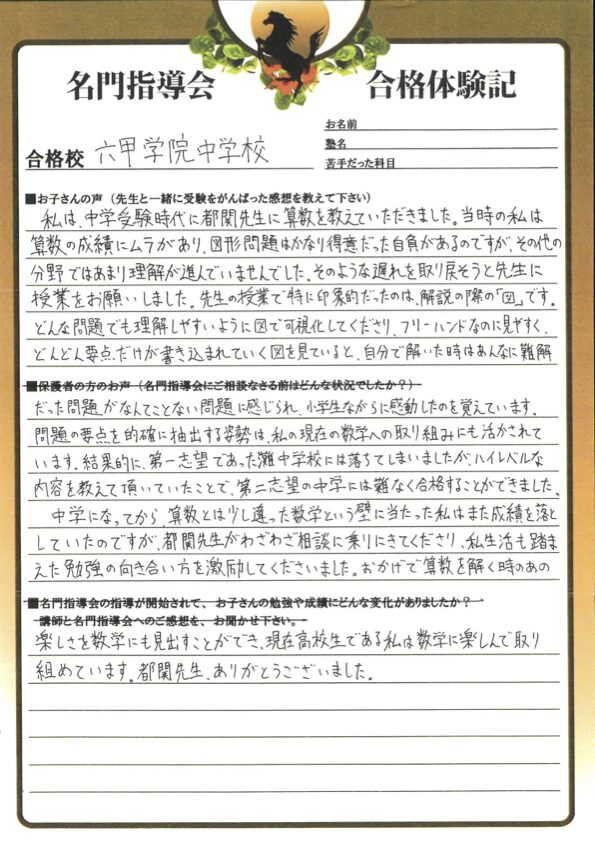 名門指導会
合格体験記
お名前
塾名
苦手だった科目
合格校 六甲学院中学校
■お子さんの声（先生と一緒に受験をがんばった感想を教えて下さい）
私は、中学受験時代に都関先生に算数を教えていただきました。当時の私は
算数の成績にムラがあり、図形問題はかなり得意だった自負があるのですが、その代の
分野ではあまり理解が進んでいませんでした。そのような遅れを取り戻そうと先生に
授業をお願いしました。先生の授業で特に印象的だったのは、解説の際の「図」です。
どんな問題でも理解しやすいように図で可視化してくださり、フリーハンドなのに見やすく、
どんどん要点だけが書き込まれていく図を見ていると、自分で解いた時はあんなに難解
■保護者の方のお声（名門指導会にご相談なさる前はどんな状況でしたか？）
だった問題がなんてことない問題に感じられ、小学生ながらに感動したのを覚えています。
問題の要点を的確に抽出する姿勢は、私の現在の数学への取り組みにも活かされて
います。結果的に、第一志望であった灘中学校には落ちてしまいましたが、ハイレベルな
内容を教えて頂いていたことで、第二志望の中学には難なく合格することができました。
中学になってから、算数とは少し違った数学という壁に当たった私はまた成績を落と
していたのですが、都関先生がわざわざ相談に乗りにきてくださり、私生活も踏ま
えた勉強の向き合い方を激励してくださいました。おかげで算数を解く時のあの
■名門指導会の指導が開始されて、お子さんの勉強や成績にどんな変化がありましたか？
講師と名門指導会へのご感想を、お聞かせ下さい。
楽しさを数学にも見出すことができ、現在高校生である私は数学に楽しんで取り
組めています。都関先生、ありがとうございました。